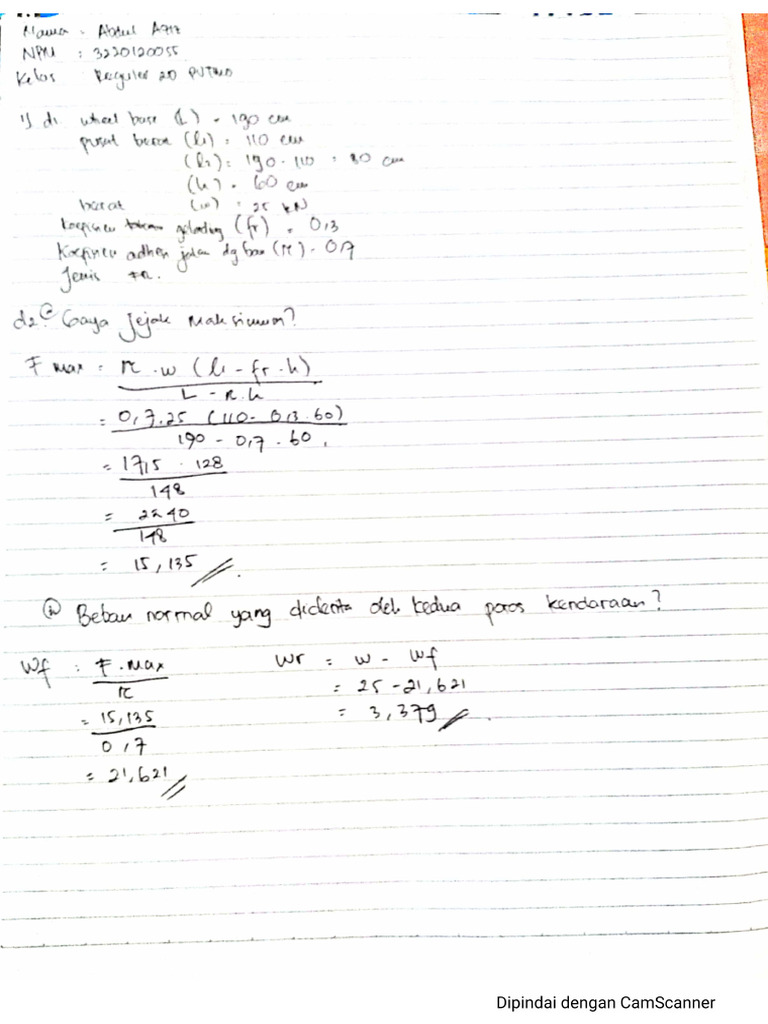 Nama : Abdul Aziz
NPM : 3220120055
Kelas : Reguler 20 PJTMO
1) d1 wheel base (L) = 190 cm
pusat berat (l1) = 110 cm
(l2) = 190 - 110 = 80 cm
(h) = 60 cm
berat (w) = 25 kN
Koefisien gelinding (fr) = 0,3
Koefisien adhesi jalan dg ban (μ) = 0,7
Jenis
d2 : @ Gaya Jejak Maksimum?
F max = μ . w (l1 - fr . h)
L - μ.h
= 0,7.25 (110 - 0,3.60)
190 - 0,7 . 60
= 17,5 . 128
148
= 2240
148
= 15,135
Beban normal yang diderita oleh kedua poros kendaraan?
Wf : F.Max
μ
= 15,135
0,7
= 21,621
Wr = w - Wf
= 25 - 21,621
= 3,379
Dipindai dengan CamScanner